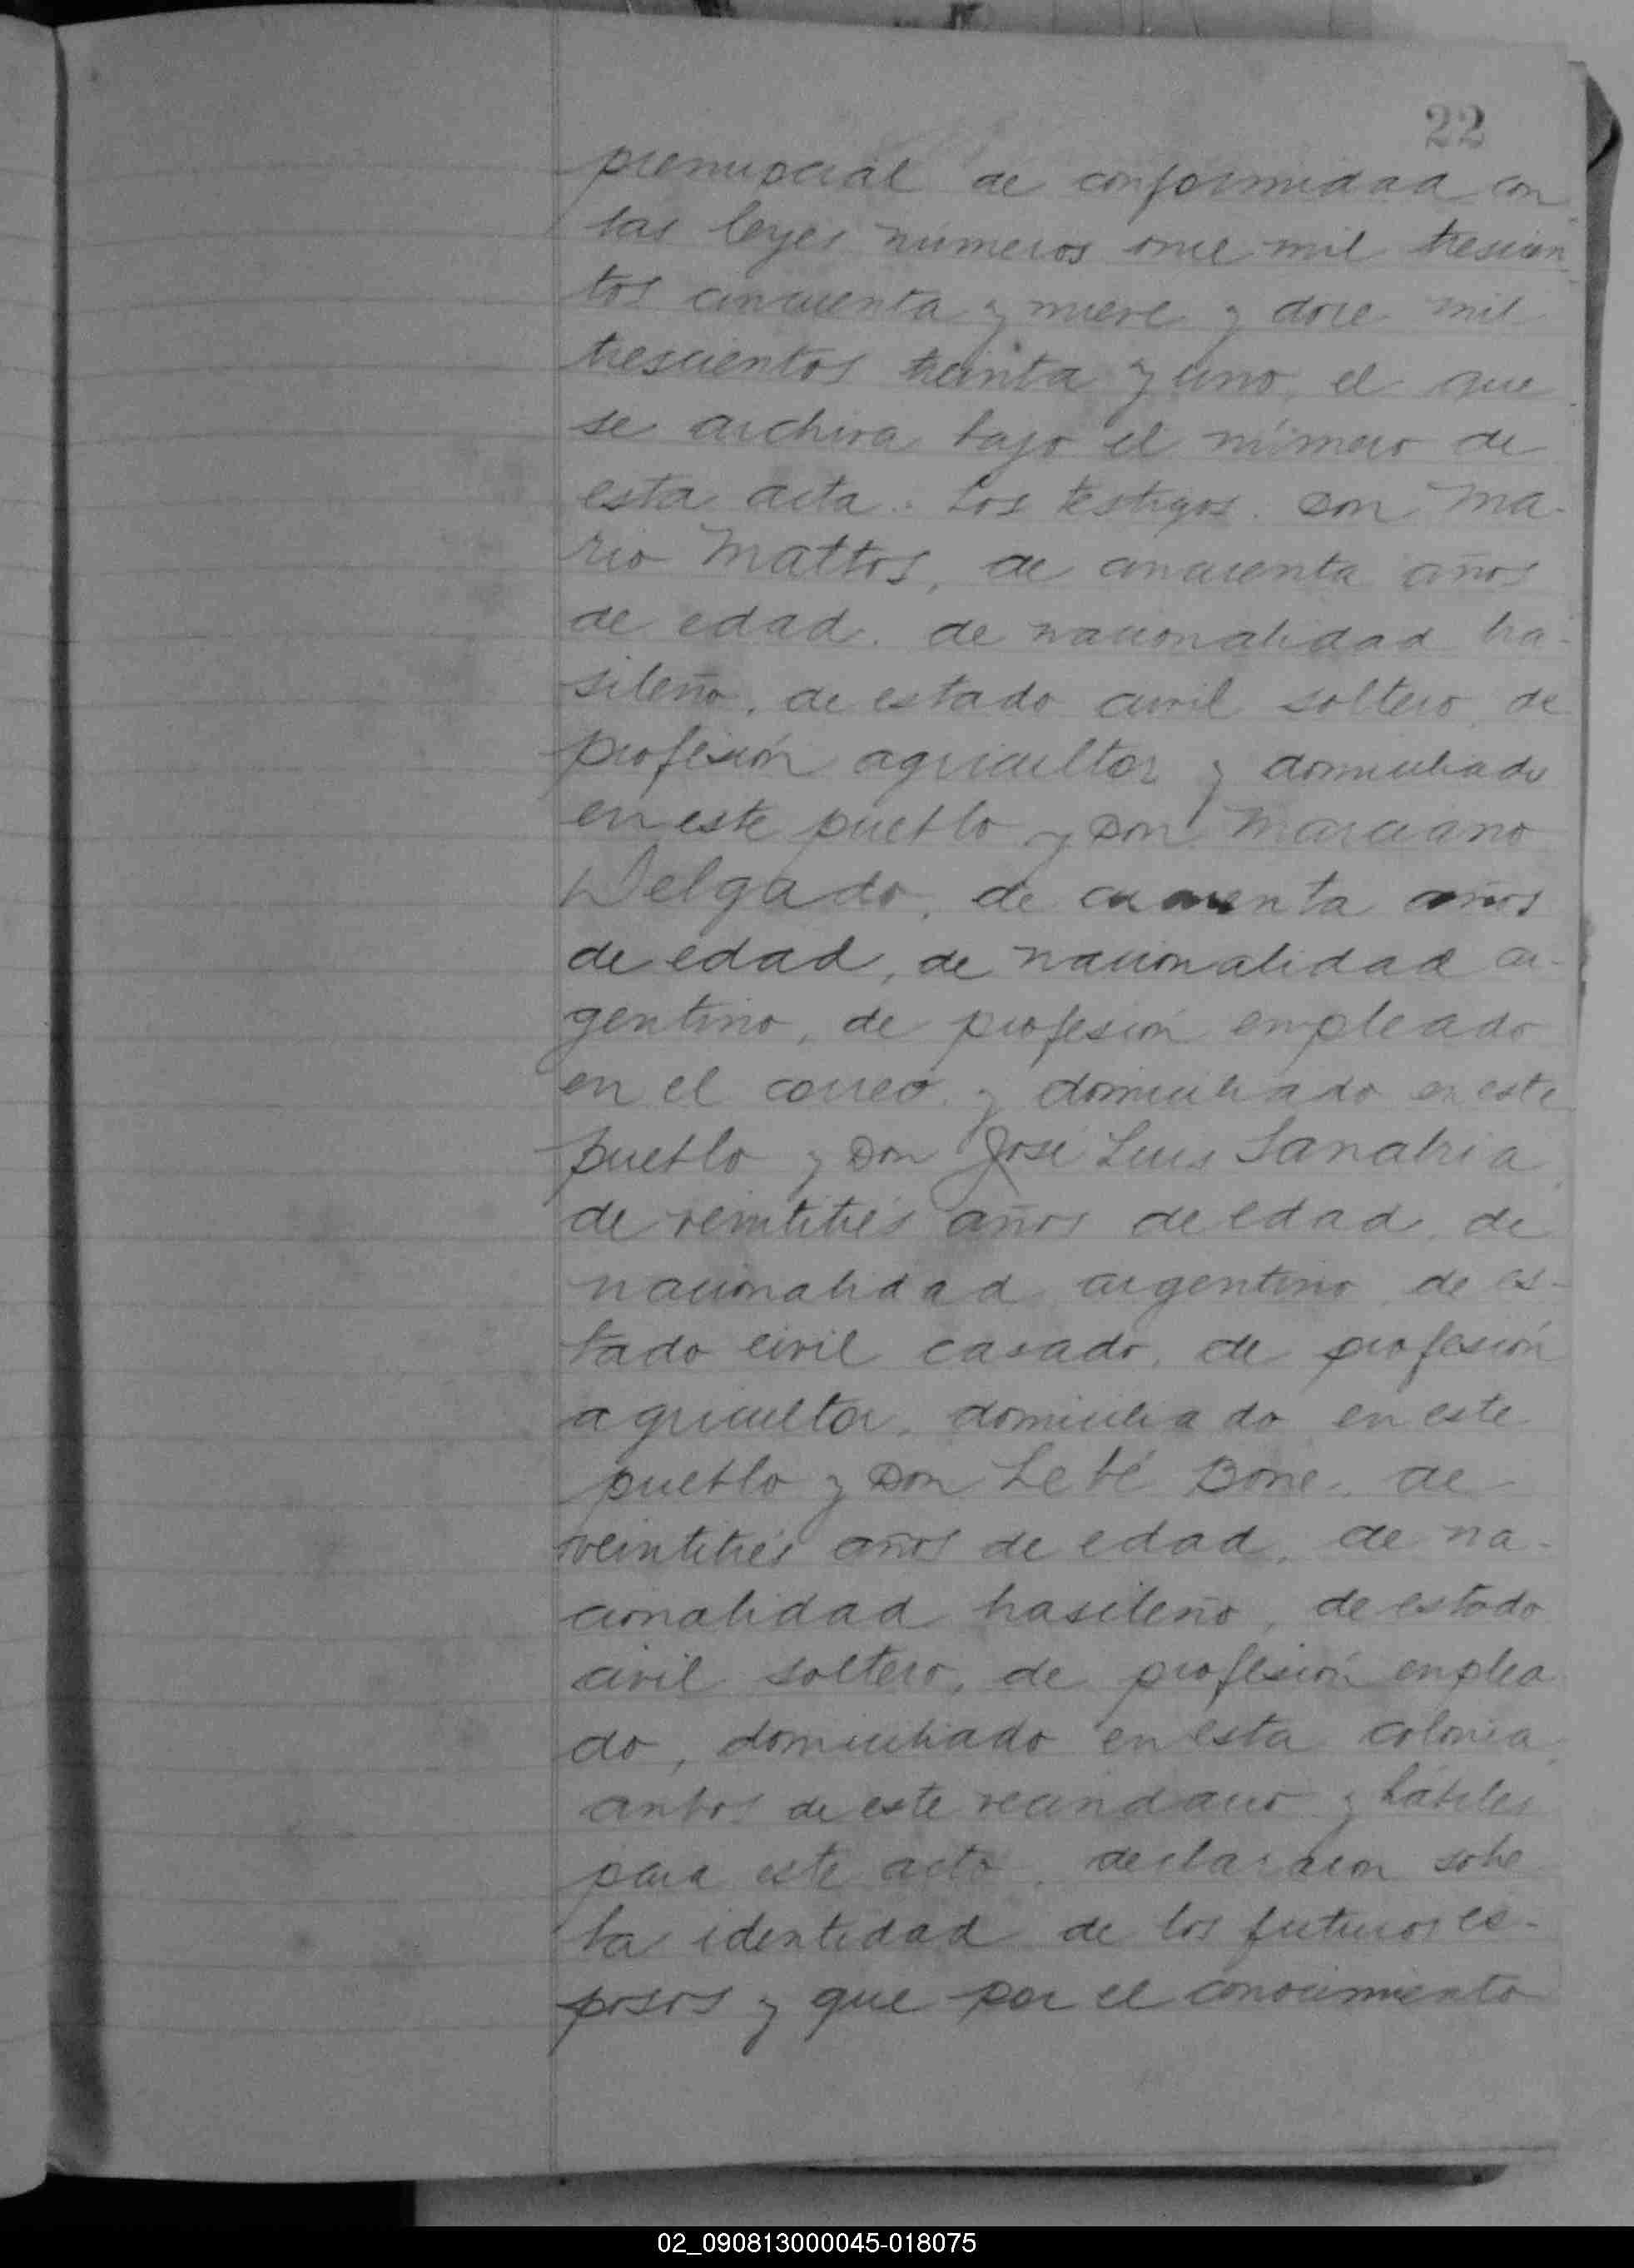 22
prenupcial de conformidad con
las leyes números once mil trescien
tos cincuenta y nueve y doce mil
trescientos treinta y uno, el que
se archiva bajo el número de
esta acta. Los testigos Don Ma-
rio Mattos, de cincuenta años
de edad, de nacionalidad bra-
sileño, de estado civil soltero, de
profesión agricultor y domiciliado
en este pueblo y Don Marciano
Delgado, de años
de edad, de nacionalidad ar-
gentino, de profesión empleado
en el correo y domiciliado en este
pueblo y Don José Luis Sanabria
de veintitrés años de edad, de
nacionalidad argentino, de es-
tado civil casado, de profesión
agricultor, domiciliado en este
pueblo y Don Bone, de
veintitrés años de edad, de na-
cionalidad brasileño, de estado
civil soltero, de profesión emplea
do, domiciliado en esta colonia,
ambos de este vecindario y hábiles
para este acto, declararon sobre
la identidad de los futuros es-
posos y que por el conocimiento
02_090813000045-018075